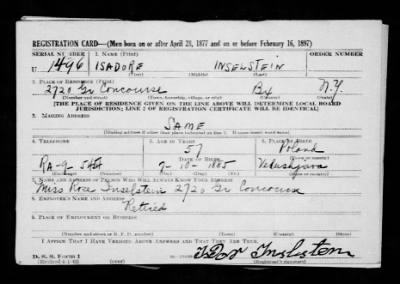 REGISTRATION CARD—(Men born on or after April 28, 1877 and on or before February 16, 1897)
SERIAL NUMBER 1. NAME (Print) ORDER NUMBER
U 1496 ISADORE INSELSTEIN
(First) (Middle) (Last)
2. PLACE OF RESIDENCE (Print)
2720 Gr Concourse Bx N.Y.
(Number and street) (Town, township, village, or city) (County) (State)
[THE PLACE OF RESIDENCE GIVEN ON THE LINE ABOVE WILL DETERMINE LOCAL BOARD
JURISDICTION; LINE 2 OF REGISTRATION CERTIFICATE WILL BE IDENTICAL]
3. MAILING ADDRESS
SAME
[Mailing address if other than place indicated on line 2. If same insert word same]
4. TELEPHONE 5. AGE IN YEARS 6. PLACE OF BIRTH
57 Poland
DATE OF BIRTH
RA-9 1885
7. NAME AND ADDRESS OF PERSON WHO WILL ALWAYS KNOW YOUR ADDRESS
Miss Rose Inselstein 2720 Gr Concourse
8. EMPLOYER'S NAME AND ADDRESS
Retired
9. PLACE OF EMPLOYMENT OR BUSINESS
(Number and street or R. F. D. number) (Town) (County) (State)
I AFFIRM THAT I HAVE VERIFIED ABOVE ANSWERS AND THAT THEY ARE TRUE.
D. S. S. Form 1
(Revised 4-1-42)